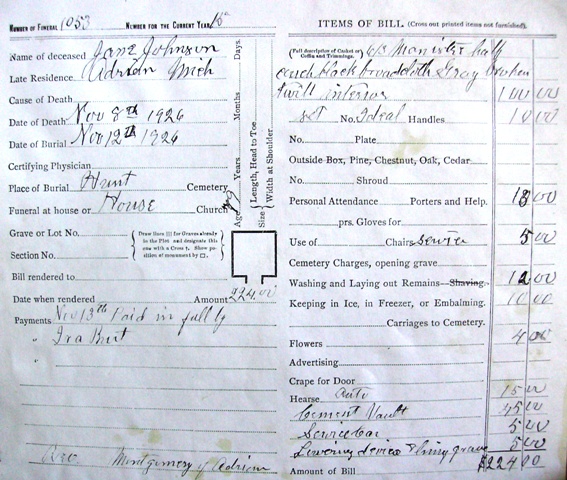 NUMBER OF FUNERAL 1053 NUMBER FOR THE CURRENT YEAR
Name of deceased Jane Johnson
Late Residence. Adrian Mich
Cause of Death
Date of Death Nov 8th 1926
Date of Burial Nov 12th 1926
Certifying Physician
Place of Burial Hunt Cemetery
Funeral at house or House Church
Grave or Lot No.
Section No.
Draw lines for Graves already in the Plot and designate this one with a Cross †. Show position of monument by □.
Bill rendered to
Date when rendered Amount 224.00
Payments Nov 13th Paid in full by
" Ira Hunt
"
Rev. Montgomery of Adrian
Age Years Months Days.
Size { Length, Head to Toe. Width at Shoulder.
ITEMS OF BILL. (Cross out printed items not furnished).
(Full description of Casket or Coffin and Trimmings. 6/3 half
couch black broadcloth Gray
twill interior 100 00
set No. Ideal Handles 10 00
No. Plate
Outside Box, Pine, Chestnut, Oak, Cedar
No. Shroud
Personal Attendance Porters and Help. 18 00
prs. Gloves for
Use of Chairs service 5 00
Cemetery Charges, opening grave
Washing and Laying out Remains—Shaving. 12 00
Keeping in Ice, in Freezer, or Embalming. 10 00
Carriages to Cemetery.
Flowers 4 00
Advertising
Crape for Door
Hearse Auto 15 00
Cement Vault 45 00
Service car 5 00
Lowering device & lining grave 5 00
Amount of Bill $224 00